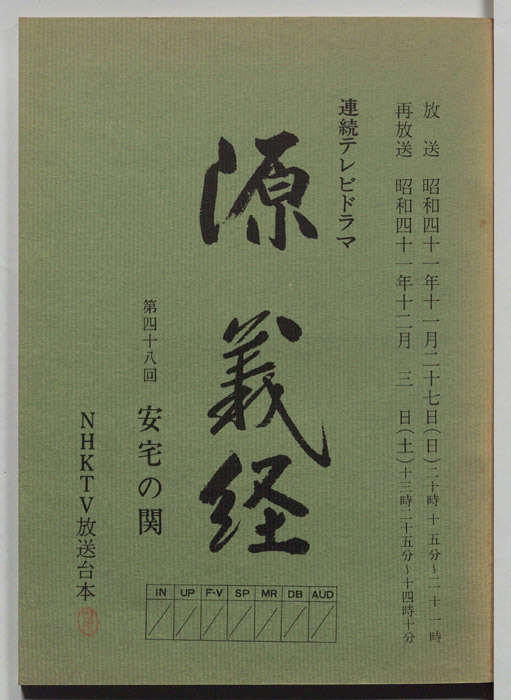 放送 昭和四十一年十一月二十七日(日)二十時十五分~二十一時
再放送 昭和四十一年十二月三日(土)十三時二十五分~十四時十分
連続テレビドラマ
源義経
第四十八回 安宅の関
NHKTV放送台本
IN UP F-V SP MR DB AUD